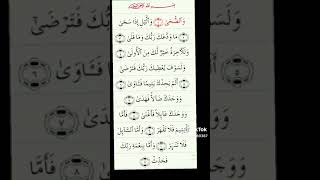 بِسْمِ اللَّهِ الرَّحْمَٰنِ الرَّحِيمِ
وَالضُّحَىٰ ١ وَالَّيْلِ إِذَا سَجَىٰ
٢ مَا وَدَّعَكَ رَبُّكَ وَمَا قَلَىٰ ٣
وَلَلْآخِرَةُ خَيْرٌ لَّكَ مِنَ الْأُولَىٰ ٤
وَلَسَوْفَ يُعْطِيكَ رَبُّكَ فَتَرْضَىٰ
٥ أَلَمْ يَجِدْكَ يَتِيمًا فَـَٔاوَىٰ ٦
وَوَجَدَكَ ضَالًّا فَهَدَىٰ ٧
وَوَجَدَكَ عَائِلًا فَأَغْنَىٰ ٨ فَأَمَّا
الْيَتِيمَ فَلَا تَقْهَرْ ٩ وَأَمَّا السَّائِلَ
فَلَا تَنْهَرْ ١٠ وَأَمَّا بِنِعْمَةِ رَبِّكَ
فَحَدِّثْ ١١
فَتَرْضَىٰ
فَـَٔاوَىٰ
فَأَمَّا
kTok